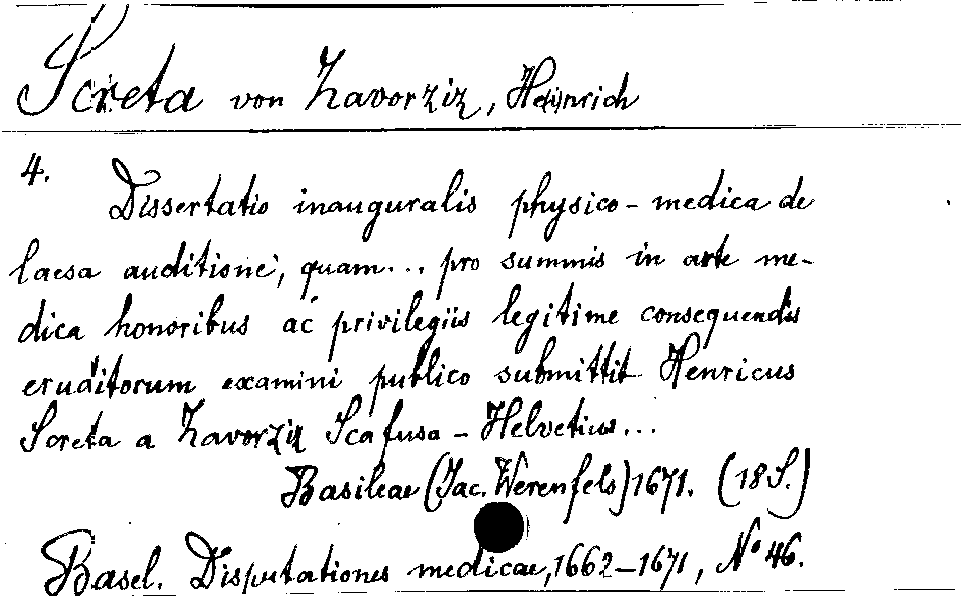 Screta von Zavorziz, Heinrich
4.
Dissertatio inauguralis physico-medica de
laesa auditione, quam... pro summis in arte me-
dica honoribus ac privilegiis legitime consequendis
eruditorum examini publico submittit Henricus
Screta a Zavorziz Scafusa-Helvetius...
Basileae (Jac. Werenfels) 1671. (18 S.)
Basel. Disputationes medicae, 1662-1671, No 46.